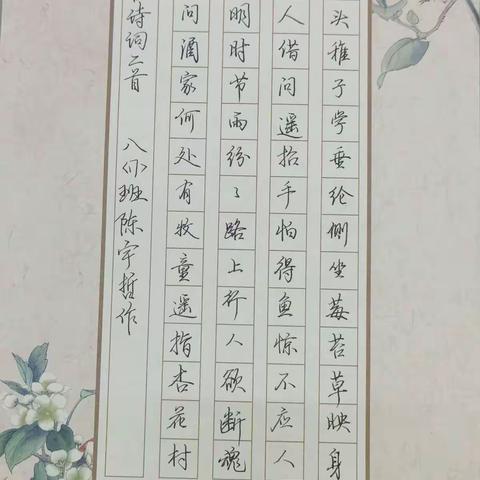 头稚子学垂纶侧坐莓苔草映身
人借问遥招手怕得鱼惊不应人
明时节雨纷々路上行人欲断魂
问酒家何处有牧童遥指杏花村
诗词二首 八(4)班陈宇哲作